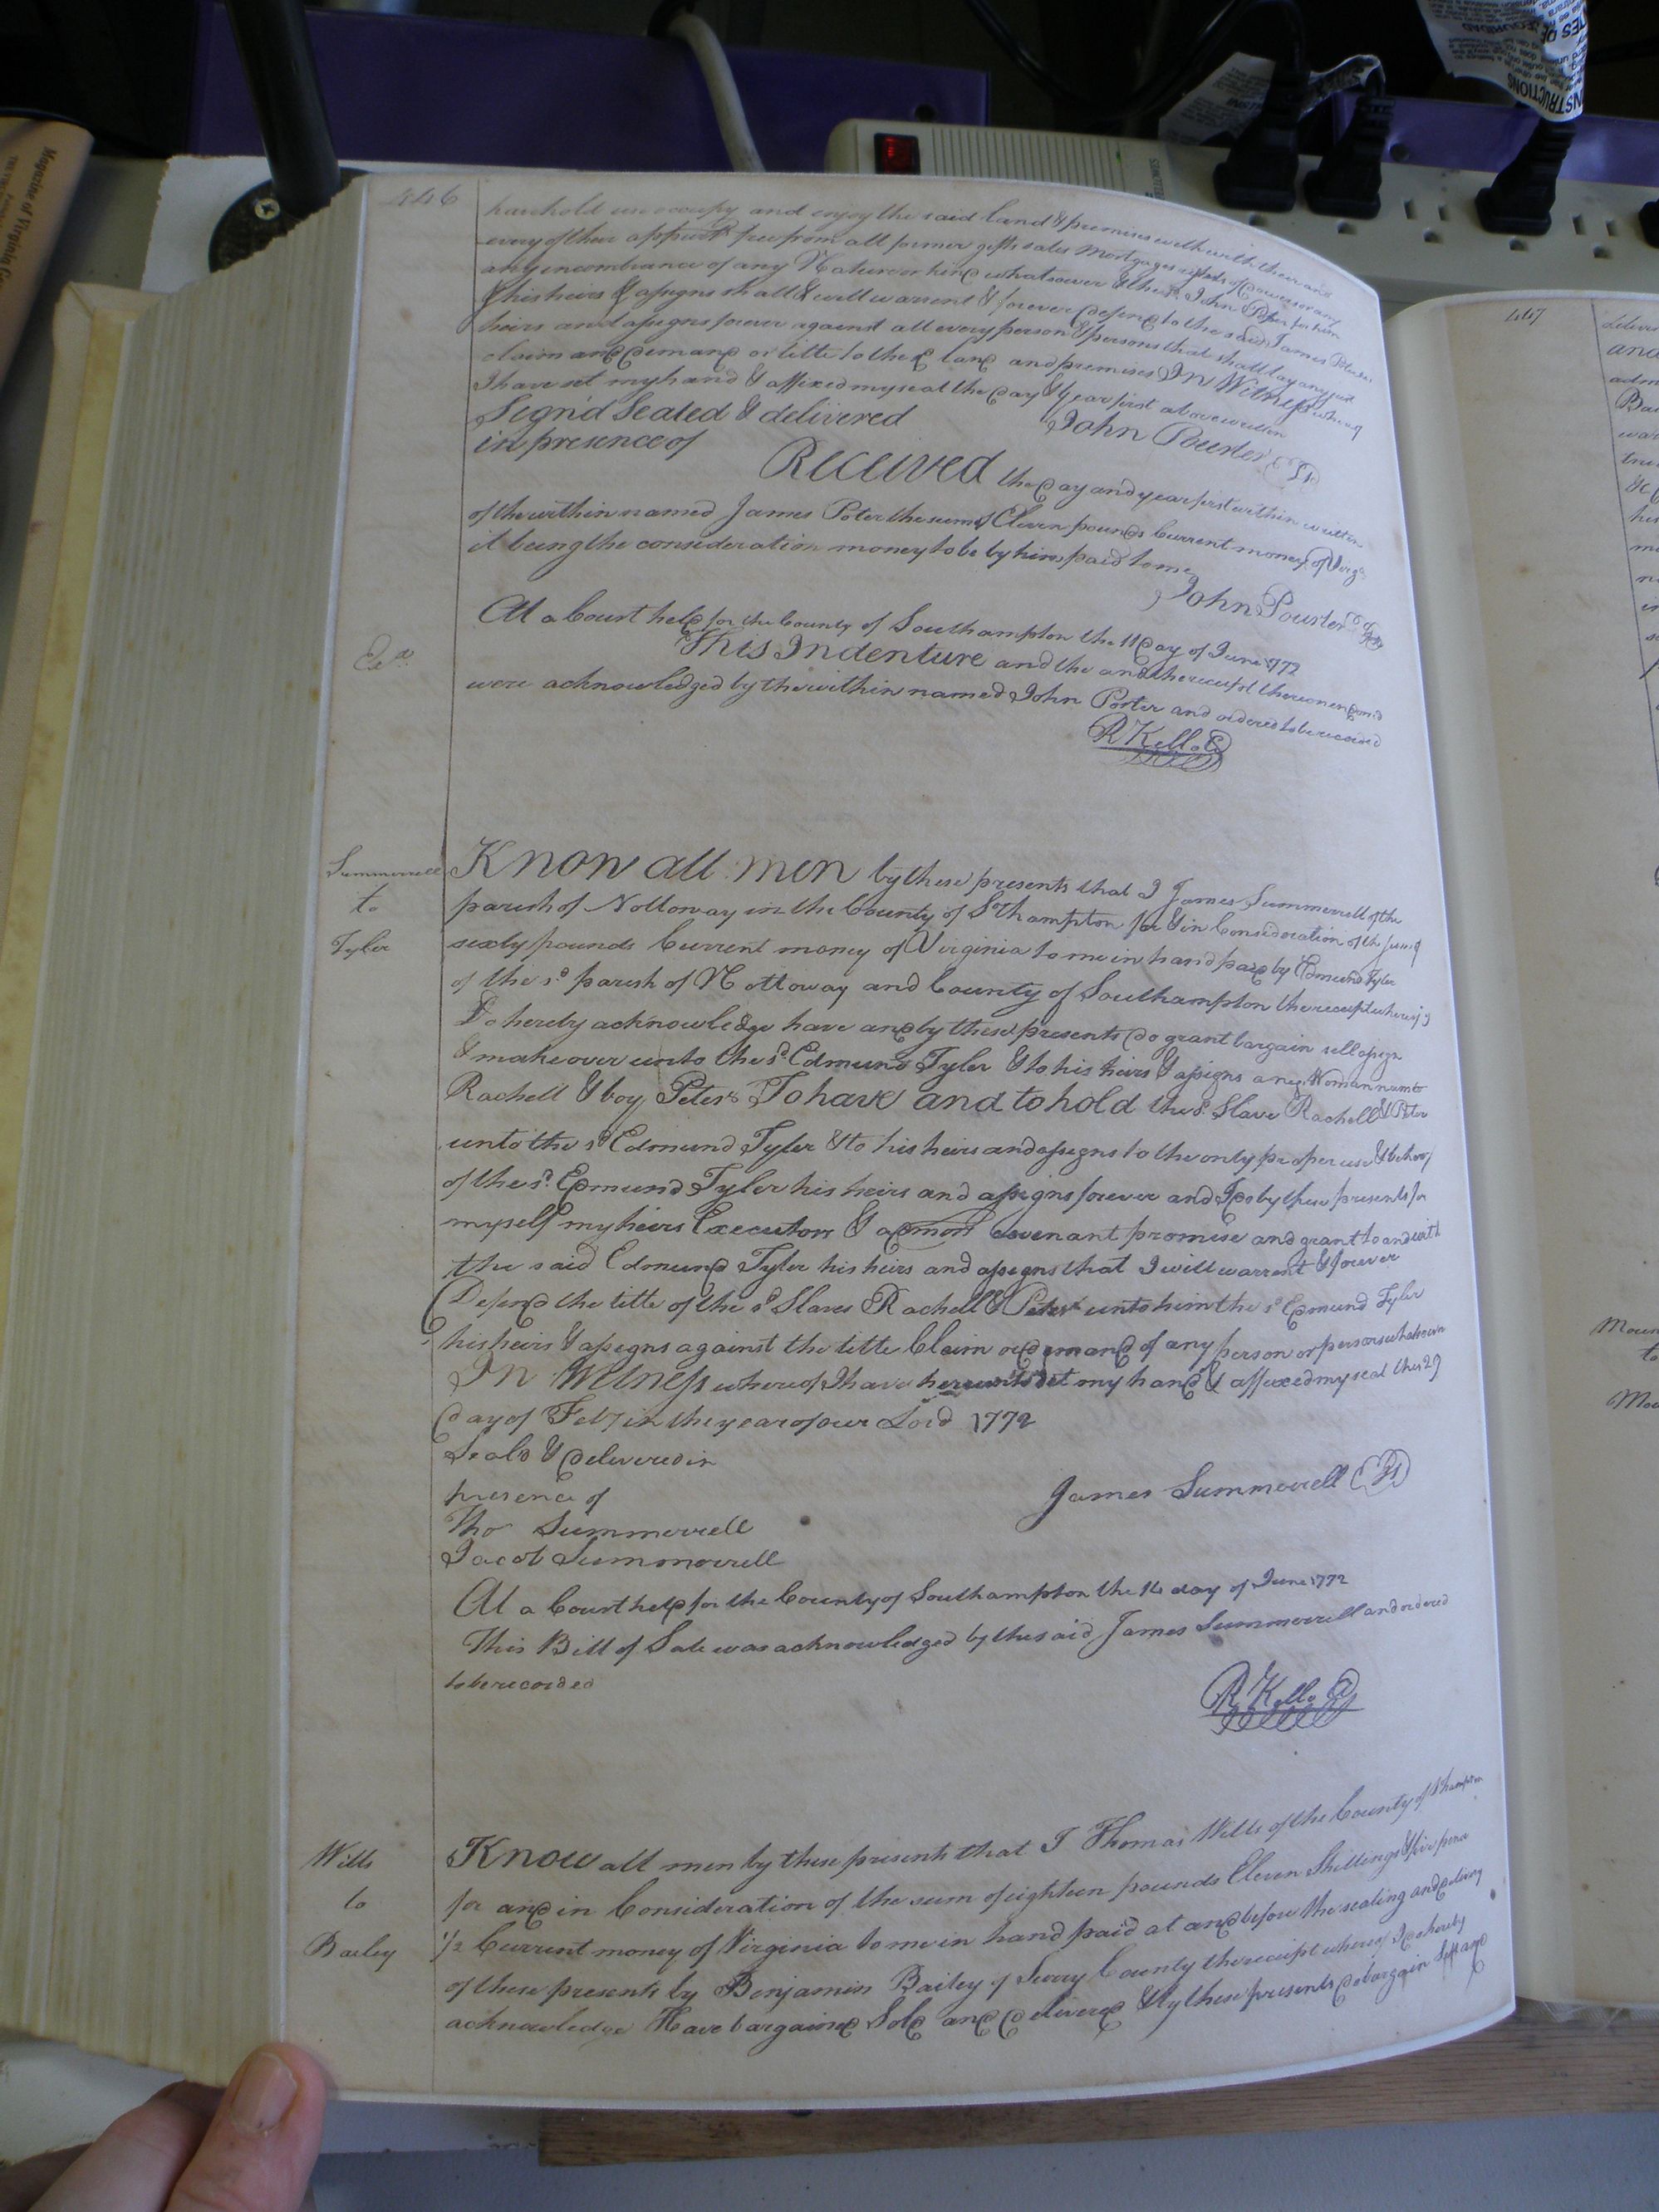 446
have hold use occupy and enjoy the said land & premises with their and
every of their appurts free from all former gifts sales Mortgages of Dower or any
any incombrance of any Nature or kind whatsoever & the sd John for him
& his heirs & assigns shall & will warrent & forever Defend to the said James
heirs and assigns forever against all every person & persons that shall lay any just
claim and Demand or title to the sd land and premises IN Witness whereof
I have set my hand & affixed my seal the Day & year first above written
Sign'd Sealed & delivered
in presence of
John Pourter
Received the Day and year first within written
of the within named James Poter the sum of Eleven pounds Current money of Virga
it being the consideration money to be by him paid to me
John Pourter
At a Court held for the County of Southampton the 11 Day of June 1772
This Indenture and the and the receipt thereon endorsd
were acknowledged by the within named John Porter and ordered to be recorded
R Kello
Summerrell
to
Tyler
Know all men by these presents that I James Summerrell of the
parish of Nottoway in the County of Sthampton for & in Consideration of the sum of
sixty pounds Current money of Virginia to me in hand paid by Edmund Tyler
of the sd parish of Nottoway and County of Southampton the receipt whereof I
Do hereby acknowledge have and by these presents do grant bargain sell assign
& make over unto the sd Edmund Tyler & to his heirs & assigns a neg Woman name
Rachell & boy Peter To have and to hold the sd Slave Rachell & Peter
unto the sd Edmund Tyler & to his heirs and assigns to the only proper use & behoof
of the sd Edmund Tyler his heirs and assigns forever and I do by these presents for
myself my heirs Executors & admors covenant promise and grant to and with
the said Edmund Tyler his heirs and assigns that I will warrent & forever
Defend the title of the sd Slaves Rachell & Peter unto him the sd Edmund Tyler
his heirs & assigns against the title Claim or demand of any person or persons whatsoever
IN Witness whereof I have hereunto set my hand & affixed my seal this 29
day of Feby in the year of our Lord 1772
Seald & delivered in
presence of
James Summerrell
Tho Summerrell
Jacob Summorrell
At a Court held for the County of Southampton the 14 day of June 1772
This Bill of Sale was acknowledged by the said James Summerrell and ordered
to be recorded
R Kello
Wills
to
Bailey
Know all men by these presents that I Thomas Wills of the County of Sthampton
for and in Consideration of the sum of eighteen pounds Eleven Shillings & five pence
1/2 Current money of Virginia to me in hand paid at and before the sealing and delivery
of these presents by Benjamin Bailey of Surry County the receipt whereof I do hereby
acknowledge Have bargained Sold and delivered & by these presents do bargain Sell and
447
Magazine of Virginia
INSTRUCTIONS